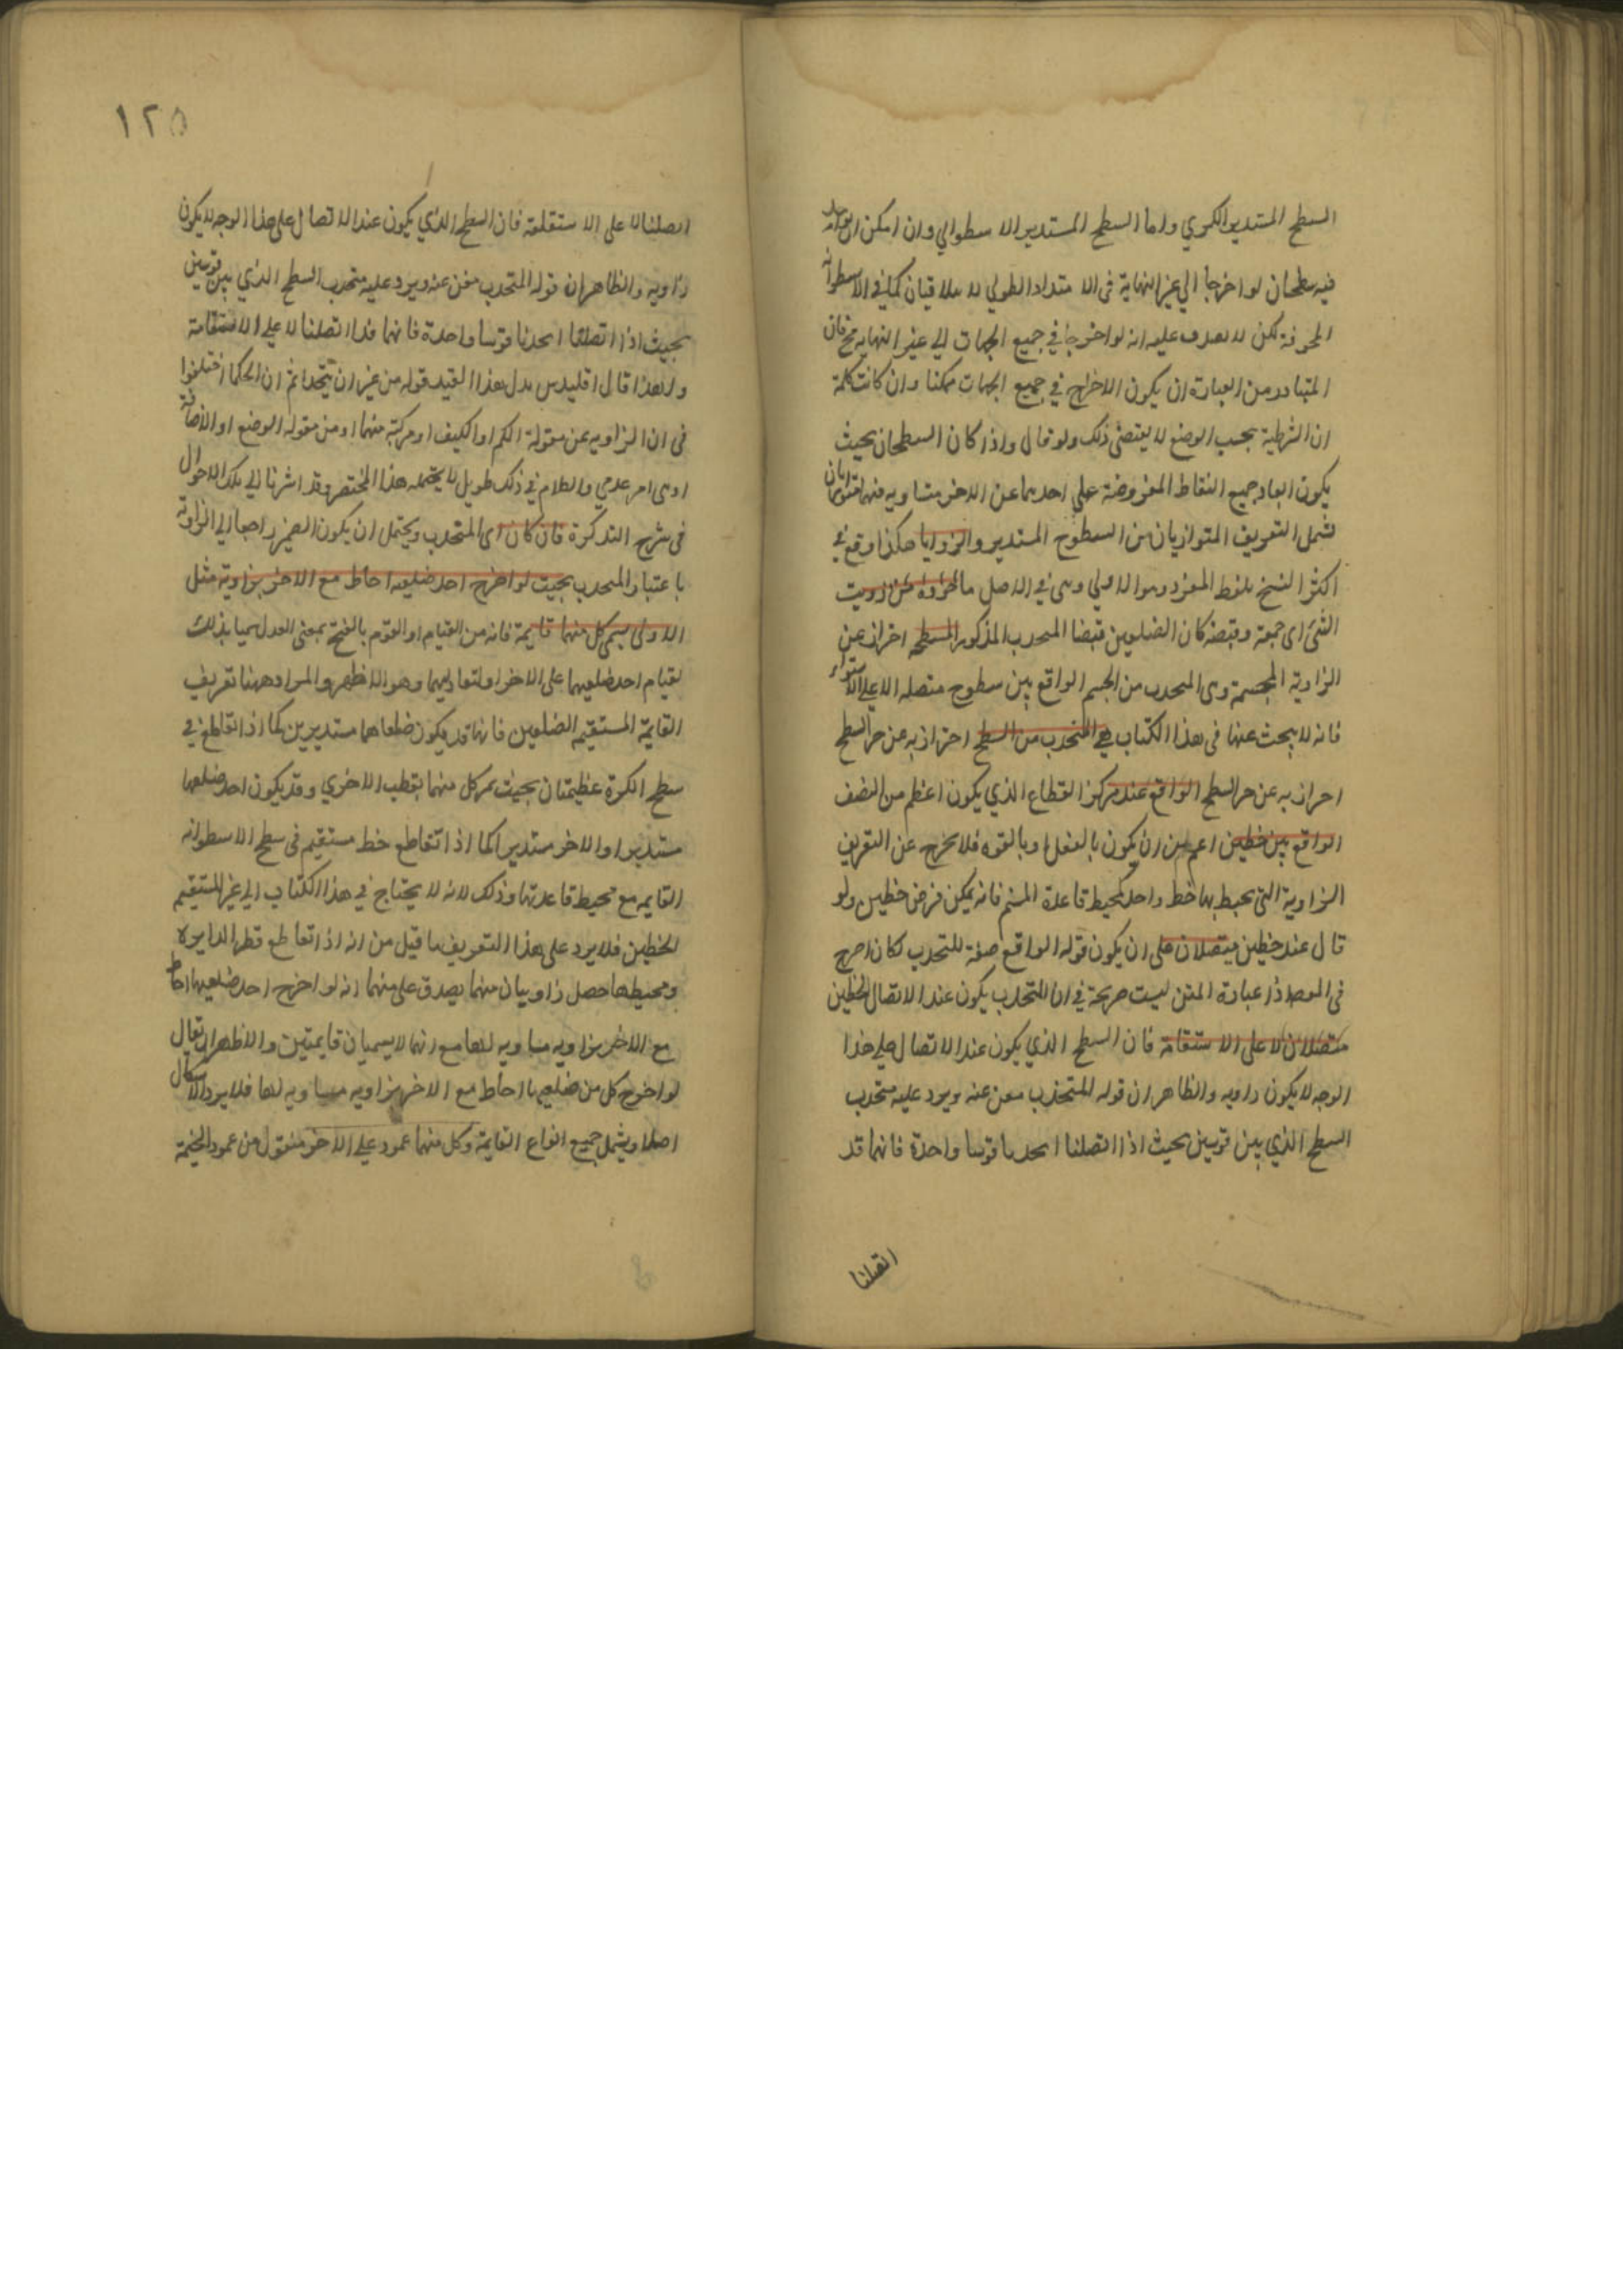 السطح المستدير الكروي واما السطح المستدير الاسطواني وان امكن ان يوجد
فيه سطحان لو اخرجا الي غير النهاية في الامتداد الطولي لا يتلاقيان كما في الاسطوانة
المجوفة لكن لا يصدق عليه انه لو اخرجا في جميع الجهات الي غير النهاية فان
المتبادر من العبارة ان يكون الاخراج في جميع الجهات ممكنا وان كانت كلمة
ان الشرطية بحسب الوضع لا يقتضي ذلك ولو قال واذا كان السطحان بحيث
يكون ابعاد جميع النقاط المفروضة علي احدهما عن الاخر متساويه فهما متوازيان
لشمل التعريف المتوازيان من السطوح المستدير والزوايا هكذا وقع في
اكثر النسخ بلفظ المفرد وهو الاولي وهي في الاصل ماخوذة من زويت
الشئ اي جمعة وقبضة كان الضلعين قبضا المنحدب المذكور المسطحه احتراز عن
الزاوية المجسمة وهي المنحدب من الجسم الواقع بين سطوح متصله لا علي الاستواء
فانه لا يبحث عنها في هذا الكتاب هي المنحدب من السطح احتراز به عن حز السطح
احراز به عن حز السطح الواقع عند مركز القطاع الذي يكون اعظم من النصف
الواقع بين خطين اعم من ان يكون بالفعل او بالقوه فلا يخرج عن التعريف
الزاوية التي يحيط بها خط واحد كمحيط قاعدة المنخ فانه يمكن فرض خطين ولو
قال عند خطين متصلان علي ان يكون قوله الواقع صفة للتحدب لكان اصرح
في المعصد اذ عبارة المتن ليست صريحة في ان التحدب يكون عند الاتصال الخطين
متصلان لا علي الاستقامة فان السطح الذي يكون عند الاتصال علي هذا
الوجه لا يكون زاويه والظاهر ان قوله المتحدب مغن عنه ويرد عليه متحدب
السطح الذي بين قوسين بحيث اذا اتصلنا اتحدتا قوسا واحدة فانهما قد
اتصلنا
١٢٥
اتصلتا لا علي الاستقامة فان السطح الذي يكون عند الاتصال علي هذا الوجه لا يكون
زاويه والظاهر ان قوله المتحدب مغن عنه ويرد عليه متحدب السطح الذي بين قوسين
بحيث اذا اتصلتا اتحدتا قوسا واحدة فانهما قد اتصلتا لا علي الاستقامة
ولهذا قال اقليدس بدل هذا القيد قوله من غير ان يتحدا ثم ان الحكما اختلفوا
في ان الزاويه من مقولة الكم او الكيف او مركبة منهما او من مقوله الوضع او الاضافة
او هي امر عدمي والكلام في ذلك طويل لا يحتمله هذا المختصر وقد اشرنا الي تلك الاحوال
في شرح التذكرة فان كان اي المتحدب ويحتمل ان يكون الضمير راجعا الي الزاوية
باعتبار المنحدب بحيث لو اخرج احد ضلعيه احاط مع الاخر بزاوية مثل
الاولي يسمي كل منهما قايمة فانه من القيام او القوم بالفتح بمعني العدل سميا بذلك
لقيام احد ضلعيهما علي الاخر او لتعادلهما وهو الاظهر والمراد ههنا تعريف
القايمة المستقيم الضلعين فانها قد يكون ضلعاهما مستديرين كما اذا تقاطع في
سطح الكرة عظيمتان بحيث يمر كل منهما بقطب الاخري وقد يكون احد ضلعيها
مستديرا والاخر مستديرا كما اذا تقاطع خط مستقيم في سطح الاسطوانه
القايمه مع محيط قاعدتها وذلك لانه لا يحتاج في هذا الكتاب الي غير المستقيم
الخطين فلا يرد علي هذا التعريف ما قيل من انه اذا تقاطع قطر الدايرة
ومحيطها حصل زاويتان منهما يصدق علي منهما انه لو اخرج احد ضلعيها احاط
مع الاخر بزاويه مساويه لها مع انهما لا يسميان قايمتين والاظهر ان يقال
لو اخرج كل من ضلعيها احاط مع الاخر بزاويه مساويه لها فلا يرد الاشكال
اصلا ويشمل جميع انواع القايمة وكل منهما عمود علي الاخر منقول من عمود الخيمة